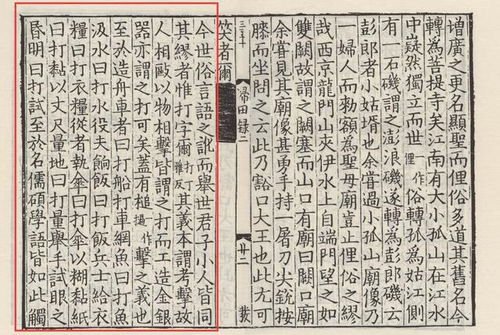 增廣之更名顯聖而俚俗多道其舊名今
轉為菩提寺矣江南有大小孤山在江水
中嶷然獨立而世一作俚俗轉孤為姑江側
有一石磯謂之澎浪磯遂轉為彭郎磯云
彭郎者小姑壻也余嘗過小孤山廟像乃
一婦人而勑額為聖母廟豈止俚俗之繆
哉西京龍門山夾伊水上自端門望之如
雙闕故謂之闕塞而山口有廟曰闕口廟
余嘗見其廟像甚勇手持一屠刀尖銳按
膝而坐問之云此乃豁口大王也此尤可
歸田錄二 廿二
笑者爾
今世俗言語之訛而舉世君子小人皆同
其繆者惟打字爾打丁雅反其義本謂考擊故
人相毆以物相擊皆謂之打而工造金銀
器亦謂之打可矣蓋有槌一作撾擊之義也
至於造舟車者曰打船打車網魚曰打魚
汲水曰打水役夫餉飯曰打飯兵士給衣
糧曰打衣糧從者執傘曰打傘以糊黏紙
曰打黏以丈尺量地曰打量舉手試眼之
昏明曰打試至於名儒碩學語皆如此觸